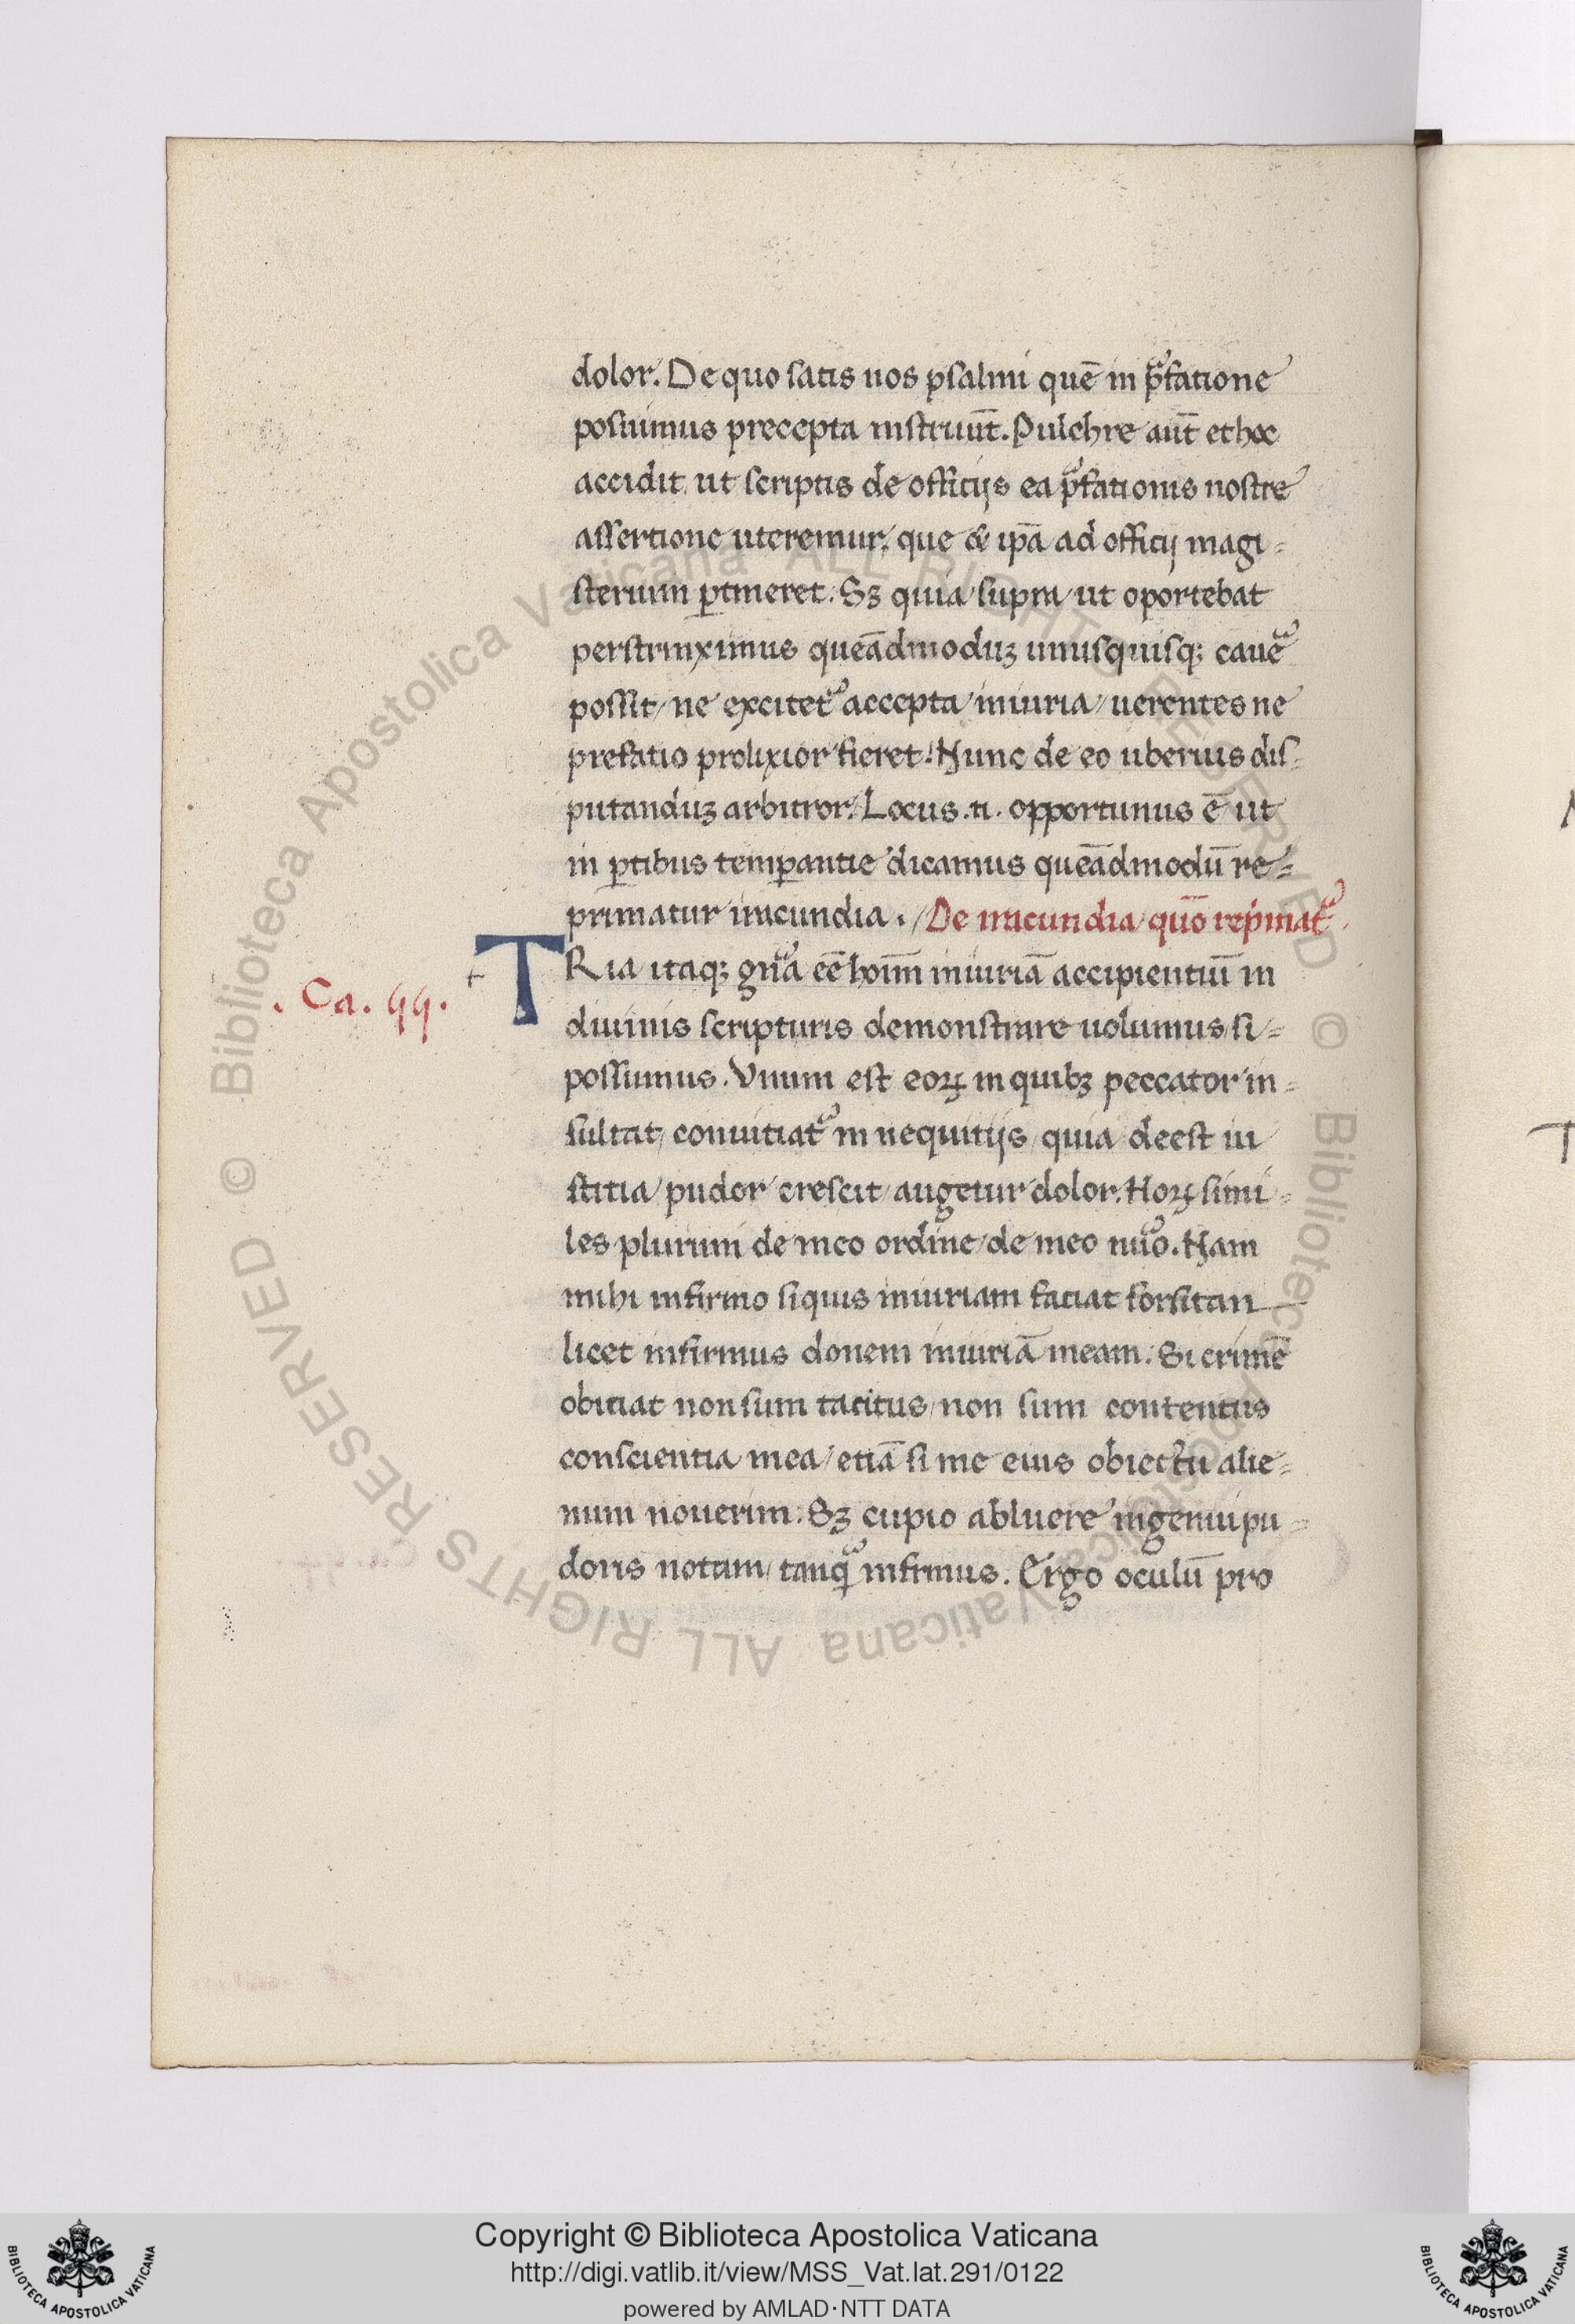 dolor. De quo satis nos psalmi quē in p̄fatione
posuimus precepta instruūt. Pulchre aūt et hoc
accidit, ut scriptis de officijs ea p̄fationis nostre
assertione uteremur, que & ip̄a ad officij magi-
sterium ꝑtineret. Sꝫ quia supra ut oportebat
perstrinximus queādmoduꝫ unusquisqꝫ cauē
possit, ne excitet᷑ accepta iniuria, uerentes ne
prefatio prolixior fieret. Nunc de eo uberius dis-
putanduꝫ arbitror. Locus .n. opportunus ē ut
in ꝑtibus temꝑantie dicamus queādmodū re-
primatur iracundia. De iracundia quō rep̄mat᷑.
. Ca. 44.
TRia itaqꝫ gn̄a eē hoīm iniuriā accipientiū in
diuinis scripturis demonstrare uolumus, si
possumus. Vnum est eoꝝ in quibꝫ peccator in-
sultat, conuitiat᷑ in nequitijs, quia deest iu
stitia, pudor crescit, augetur dolor. Hoꝝ simi-
les plurimi de meo ordine, de meo nūo. Nam
mihi infirmo siquis iniuriam faciat forsitan
licet infirmus donem iniuriā meam. Si crimē
obiciat non sum tacitus, non sum contentus
conscientia mea, etiā si me eius obiectu alie-
num nouerim. Sꝫ cupio abluere ingenui pu-
doris notam, tanq̄ infirmus. Ergo oculū pro
© Biblioteca Apostolica Vaticana ALL RIGHTS RESERVED © Biblioteca Apostolica Vaticana ALL RIGHTS RESERVED
Copyright © Biblioteca Apostolica Vaticana
http://digi.vatlib.it/view/MSS_Vat.lat.291/0122
powered by AMLAD·NTT DATA
BIBLIOTECA APOSTOLICA VATICANA
BIBLIOTECA APOSTOLICA VATICANA